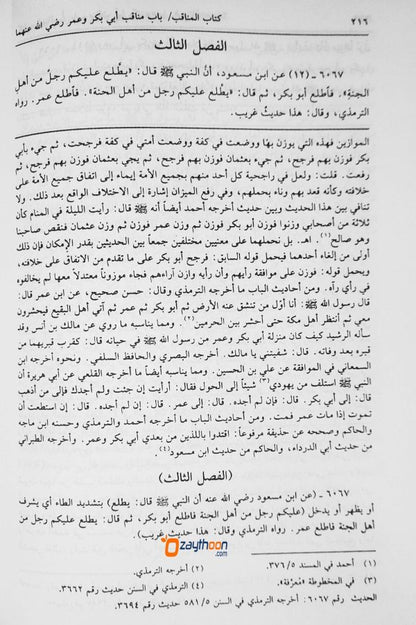 ٢١٦ كتاب المناقب/ باب مناقب أبي بكر وعمر رضي الله عنهما
الفصل الثالث
٦٠٦٧ ـ (١٢) عن ابن مسعود، أنَّ النبي ﷺ قال: «يطَّلع عليكم رجلٌ من أهلِ
الجنةِ». فأطلع أبو بكر، ثم قال: «يطَّلع عليكم رجل من أهل الجنة». فأطلع عمر. رواه
الترمذي، وقال: هذا حديثٌ غريب.
الموازين فهذه التي يوزن بها وضعت في كفة ووضعت أمتي في كفة فرجحت، ثم جيء بأبي
بكر فوزن بهم فرجح، ثم جيء بعثمان فوزن بهم فرجح، ثم يجي بعثمان فوزن بهم فرجح، ثم
رفعت. قلت: ولعل في راجحية كل أحد منهم بجميع الأمة إيماء إلى اتفاق جميع الأمة على
خلافته وكأنه قعد بهم وناء بحملهم، وفي رفع الميزان إشارة إلى الاختلاف الواقع بعد ذلك. ولا
تنافي بين هذا الحديث وبين حديث أخرجه أحمد أيضاً أنه ﷺ قال: رأيت الليلة في المنام كأن
ثلاثة من أصحابي وزنوا فوزن أبو بكر فوزن ثم وزن عمر فوزن ثم وزن عثمان فنقص صاحبنا
وهو صالح(١). اهـ. بل نحملهما على معنيين مختلفين جمعاً بين الحديثين بقدر الإمكان فإن ذلك
أولى من إلغاء أحدهما فيحمل قوله السابق: فرجح أبو بكر على ما تقدم من الاتفاق على خلافته،
ويحمل قوله: فوزن على موافقة رأيهم وأن رأيه وازن آراءهم فجاء موزوناً معتدلاً معها لم يخالفوه
في رأي رآه. ومن أحاديث الباب ما أخرجه الترمذي وقال: حسن صحيح، عن ابن عمر قال:
قال رسول الله ﷺ: أنا أوّل من تنشق عنه الأرض ثم أبو بكر ثم عمر ثم آتي أهل البقيع فيحشرون
معي ثم أنتظر أهل مكة حتى أحشر بين الحرمين(٢). ومما يناسبه ما روي عن مالك بن أنس وقد
سأله الرشيد كيف كان منزلة أبي بكر وعمر من رسول الله ﷺ في حياته قال: كقرب قبريهما من
قبره بعد وفاته. قال: شفيتني يا مالك. أخرجه البصري والحافظ السلفي. ونحوه أخرجه ابن
السمعاني في الموافقة عن علي بن الحسين. ومما يناسبه أيضاً ما أخرجه القلعي عن أبي هريرة أن
النبي ﷺ استلف من يهودي(٣) شيئاً إلى الحول فقال: أرأيت إن جئت ولم أجدك فإلى من أذهب
قال: إلى أبي بكر. قال: فإن لم أجده. قال: إلى عمر. قال: إن لم أجده. قال: إن استطعت أن
تموت إذا مات عمر فمت. ومن أحاديث الباب ما أخرجه أحمد والترمذي وحسنه ابن ماجه
والحاكم وصححه عن حذيفة مرفوعاً: اقتدوا باللذين من بعدي أبي بكر وعمر. وأخرجه الطبراني
من حديث أبي الدرداء، والحاكم من حديث ابن مسعود(٤).
(الفصل الثالث)
٦٠٦٧ ـ (عن ابن مسعود رضي الله عنه أن النبي ﷺ قال: يطلع) بتشديد الطاء أي يشرف
أو يظهر أو يدخل (عليكم رجل من أهل الجنة فاطلع أبو بكر، ثم قال: يطلع عليكم رجل من
أهل الجنة فاطلع عمر. رواه الترمذي وقال: هذا حديث غريب).
Ozaythoon
.com
(١) أحمد في المسند ٣٧٦/٥. (٢) أخرجه الترمذي.
(٣) في المخطوطة «مُعرّفة». (٤) الترمذي في السنن حديث رقم ٣٦٦٢.
الحديث رقم ٦٠٦٧: أخرجه الترمذي في السنن ٥٨١/٥ حديث رقم ٣٦٩٤.